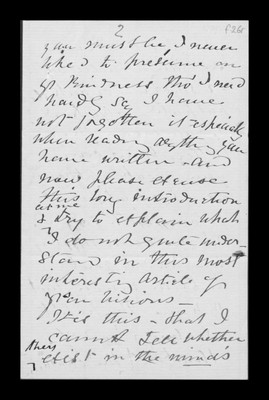 2
you must be, I never
liked to presume on
yr Kindness tho' I need
hardly say I have
not forgotten it especially
when reading anything you
have written - and
now please excuse
this long introduction
& try to explain what
I do not quite under-
stand in this most
interesting article of
yr on visions -
It is this - that I
cannot tell whether
they exist in the minds